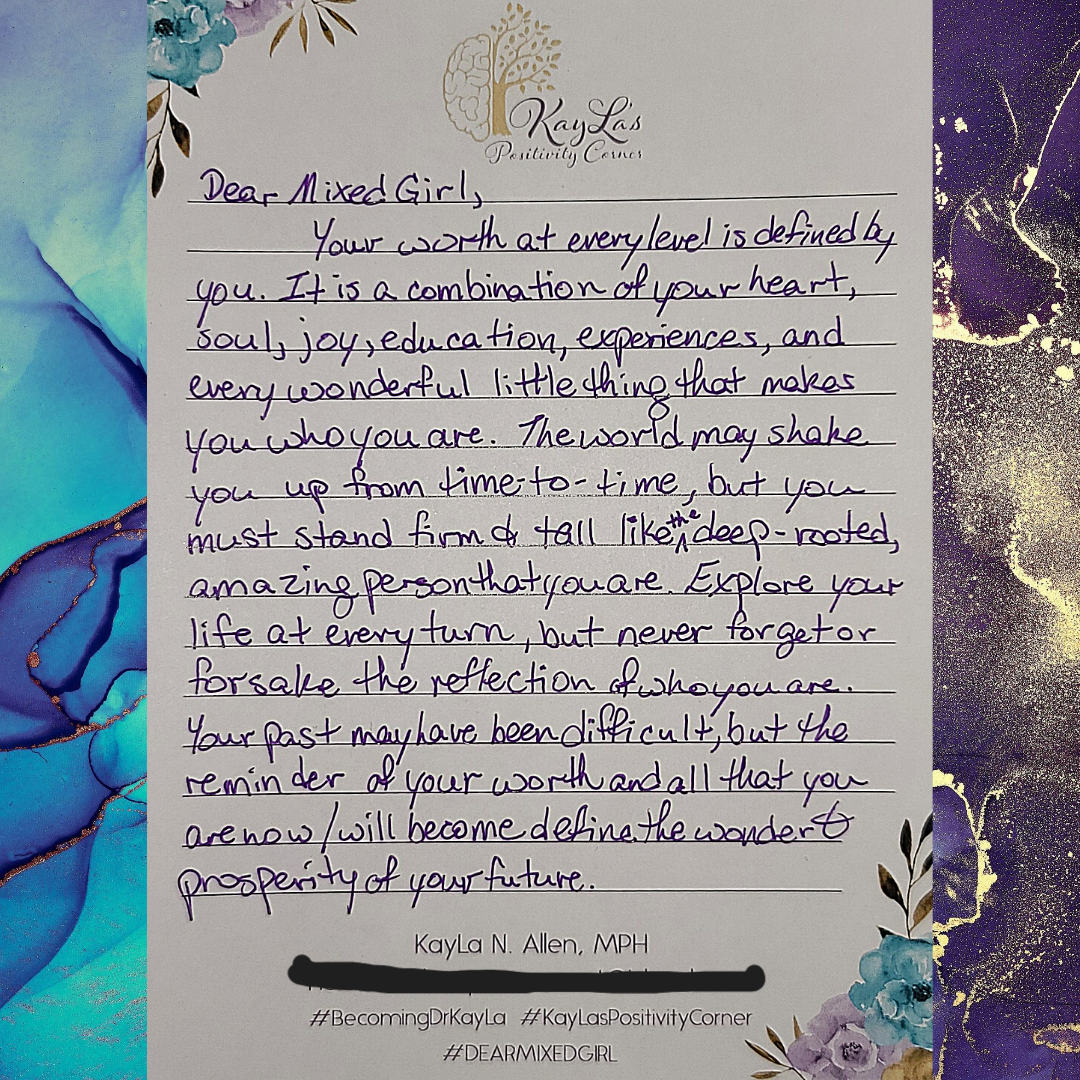 KayLa's
Positivity Corner
Dear Mixed Girl,
Your worth at every level is defined by
you. It is a combination of your heart,
soul, joy, education, experiences, and
every wonderful little thing that makes
you who you are. The world may shake
you up from time-to-time, but you
must stand firm & tall like the deep-rooted,
amazing person that you are. Explore your
life at every turn, but never forget or
forsake the reflection of who you are.
Your past may have been difficult, but the
reminder of your worth and all that you
are now/will become define the wonder &
prosperity of your future.
KayLa N. Allen, MPH
#BecomingDrKayLa #KayLasPositivityCorner
#DEARMIXEDGIRL